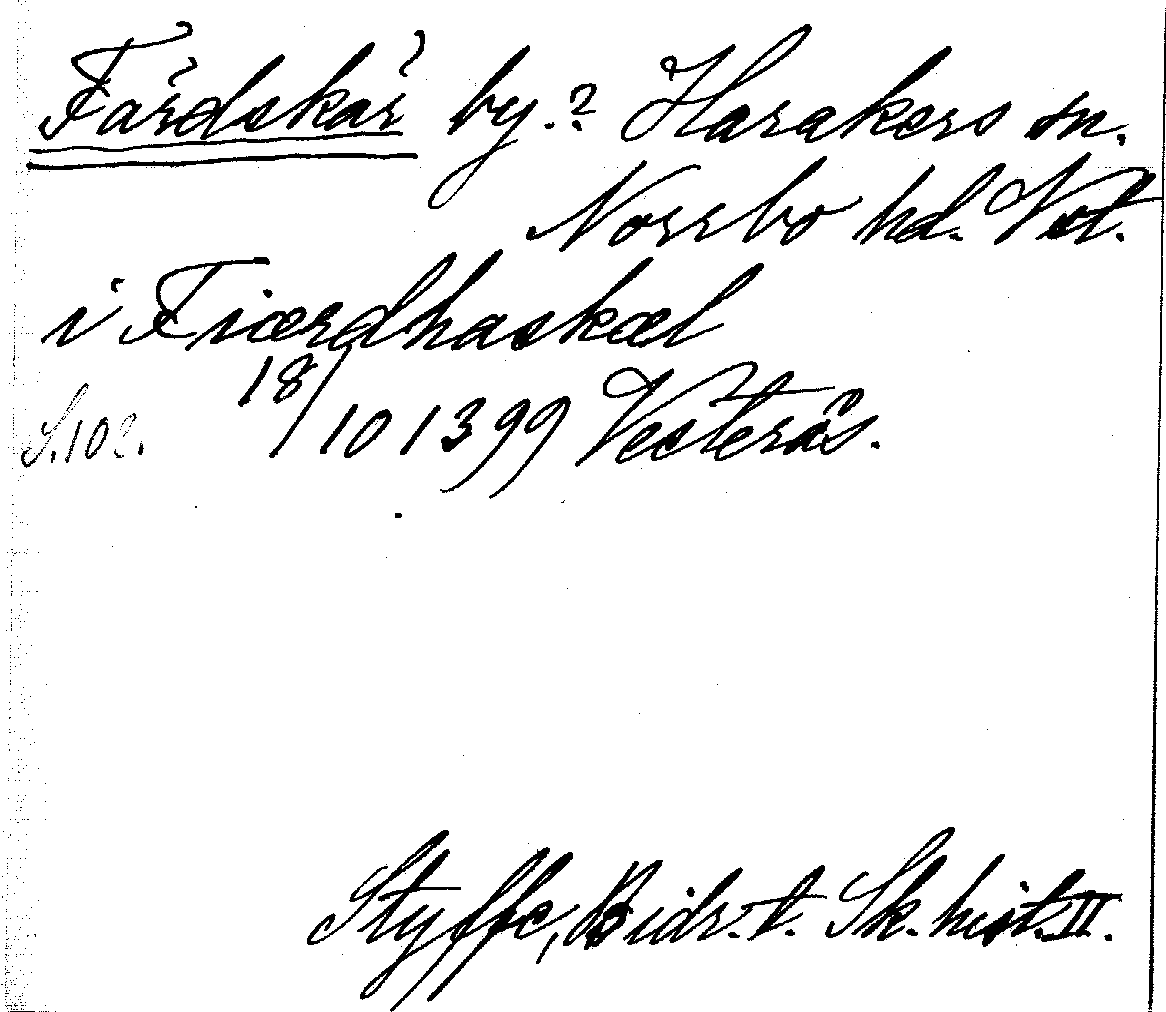 Färdskär by.? Harakers sn.
Norrbo hd. Vstl.
i Fiærdhaskæl
18/10 1399 Vesterås.
S. 102.
Styffe, Bidr. t. Sk. hist. II.